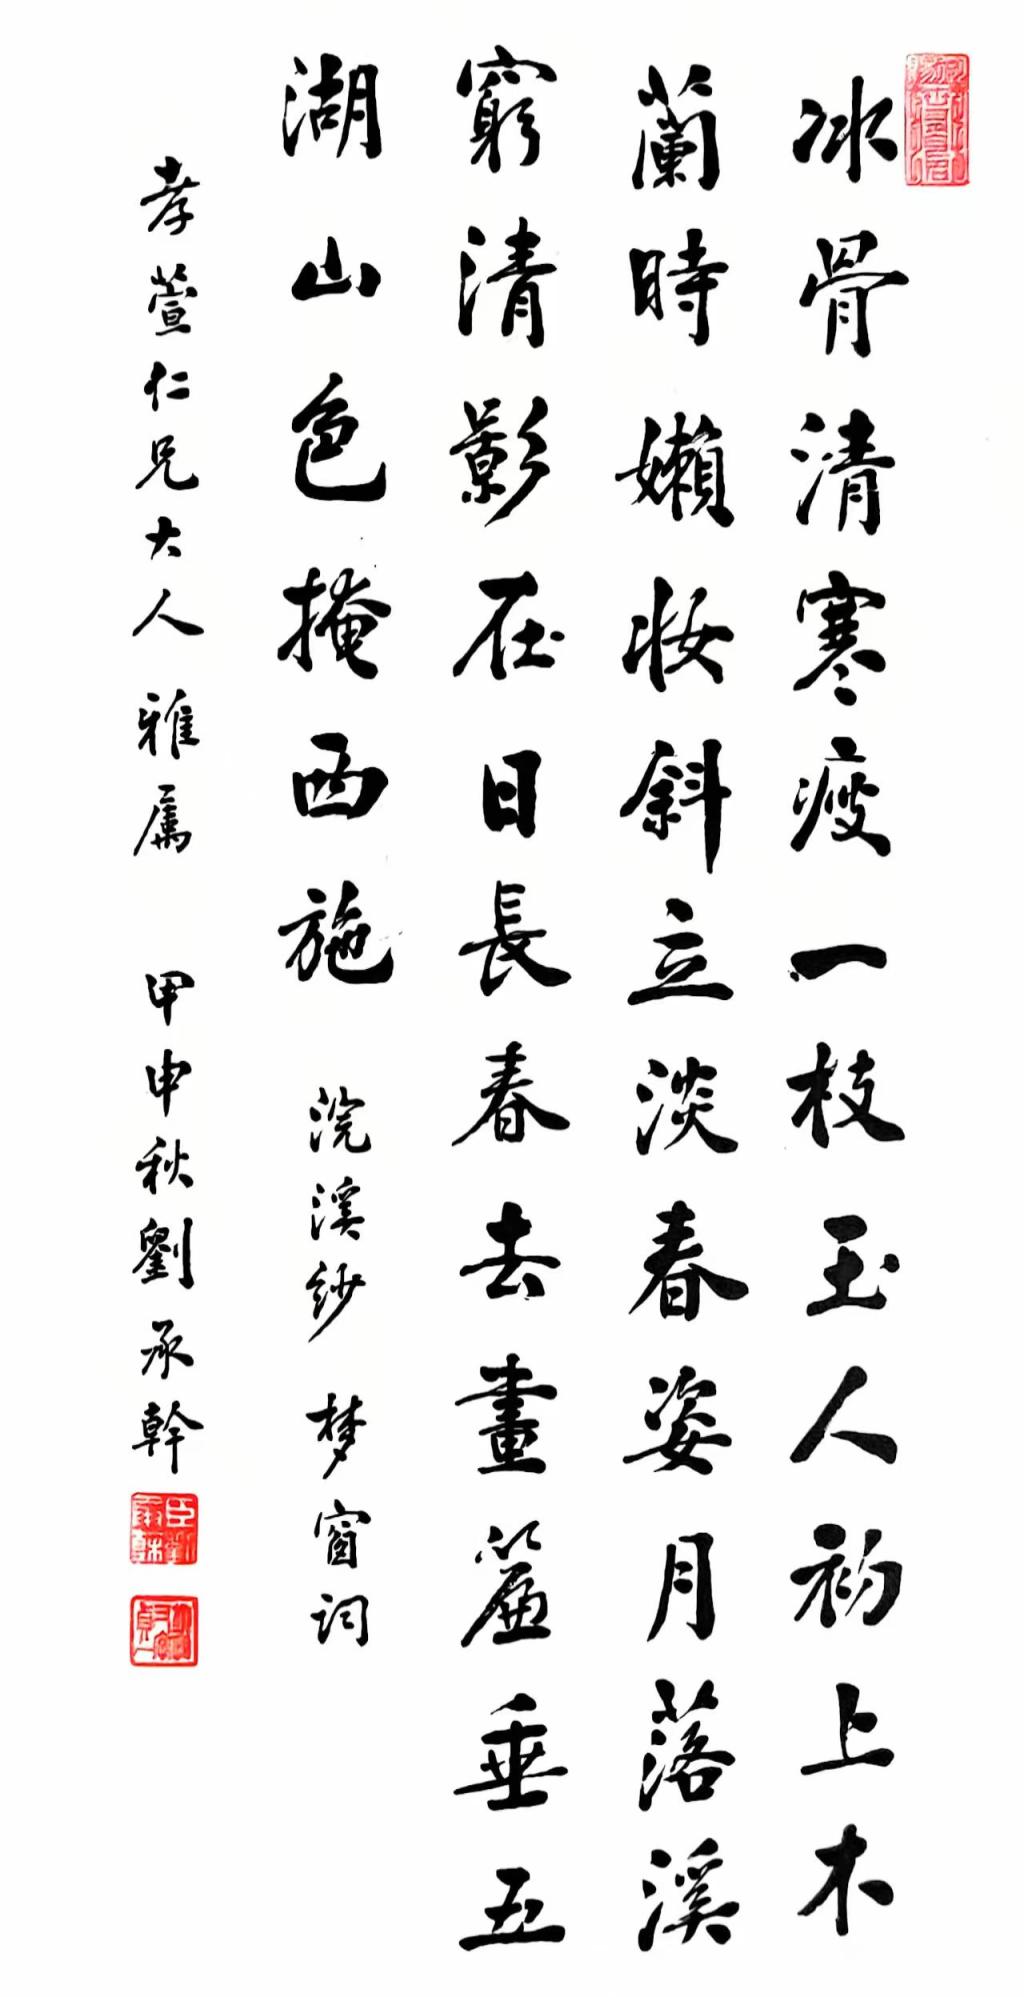 冰骨清寒瘦一枝玉人初上木
蘭時嬾妝斜立淡春姿月落溪
窮清影在日長春去畫簾垂五
湖山色掩西施
浣溪紗 梦窗词
孝萱仁兄大人雅属 甲申秋劉承幹